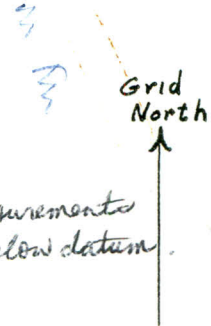 Grid
North
urements
low datum.